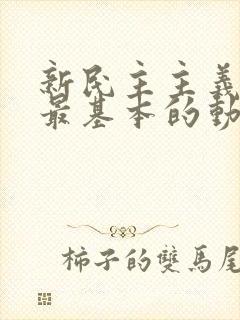 新民主主義
最基本的動
柿子的雙馬尾